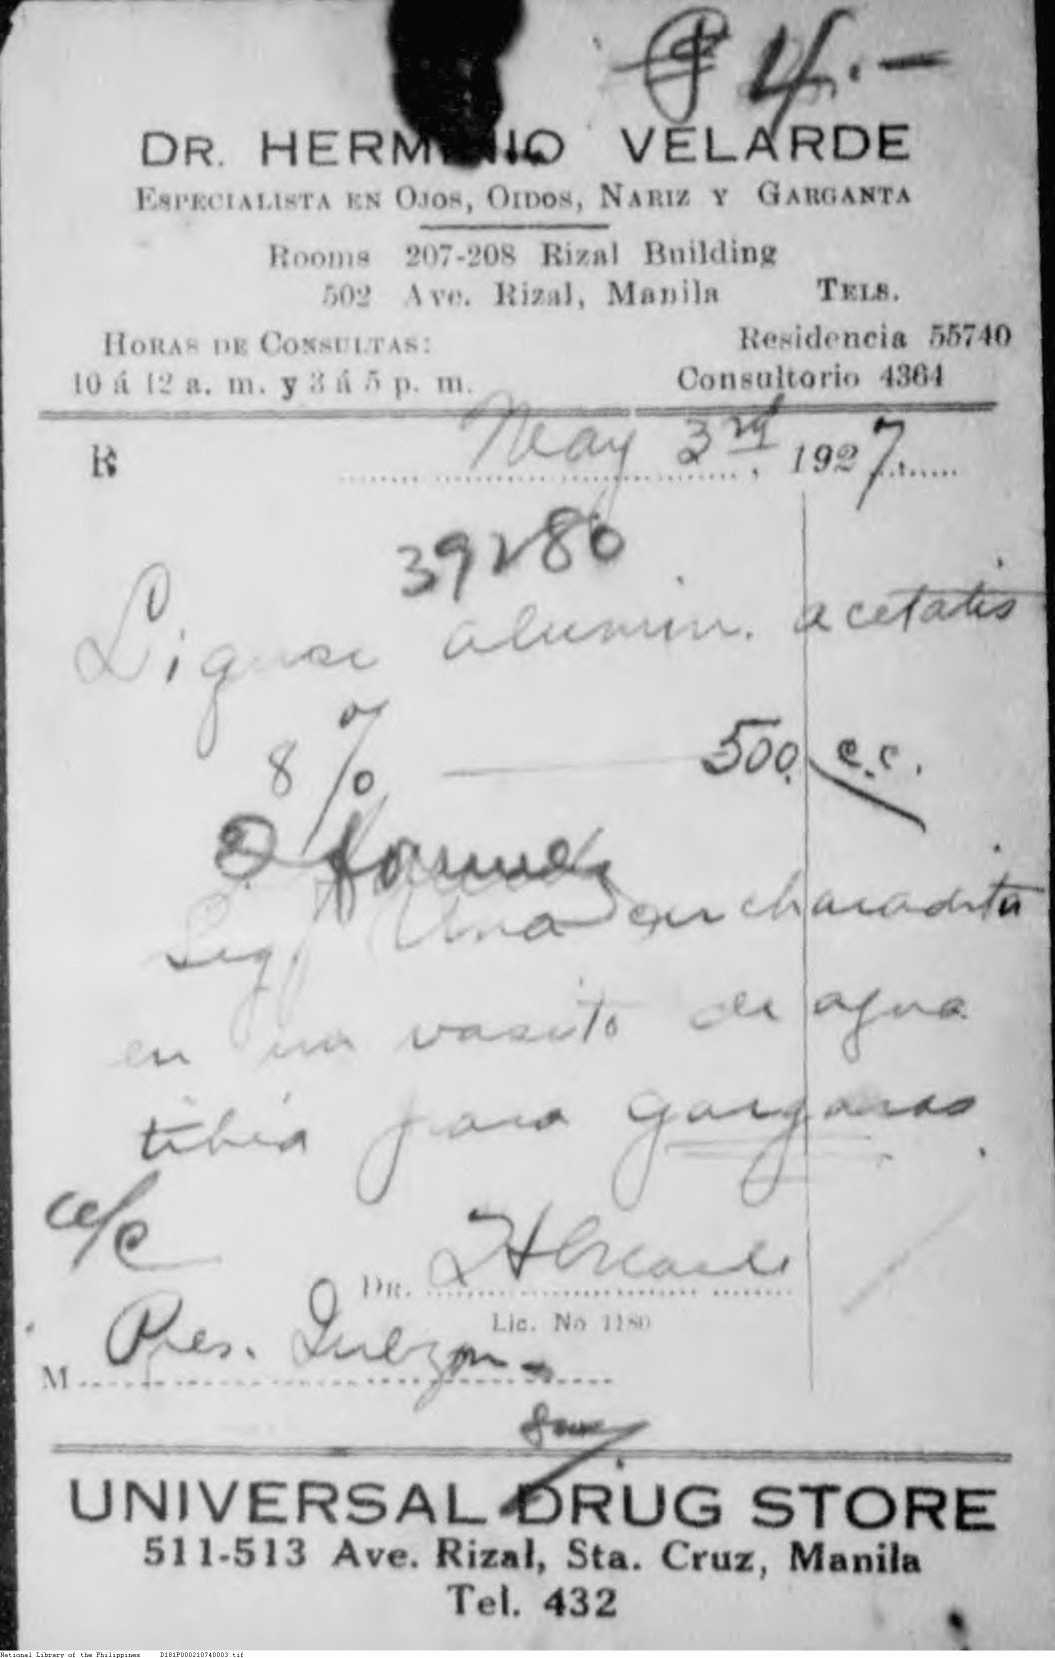 ₱ 4.-
DR. HERMINIO VELARDE
ESPECIALISTA EN OJOS, OIDOS, NARIZ Y GARGANTA
Rooms 207-208 Rizal Building
502 Ave. Rizal, Manila TELS.
HORAS DE CONSULTAS: Residencia 55740
10 á 12 a. m. y 3 á 5 p. m. Consultorio 4364
R May 3rd, 1927.
39280
Liquori alumin. acetatis
8% — 500. c.c.
Sig. Una cucharadita
en un vasito de agua
tibia para gargaras.
a/c
DR. HVelarde
Lic. No 1180
M Pres. Quezon-
UNIVERSAL DRUG STORE
511-513 Ave. Rizal, Sta. Cruz, Manila
Tel. 432
National Library of the Philippines D181P000210740003.tif